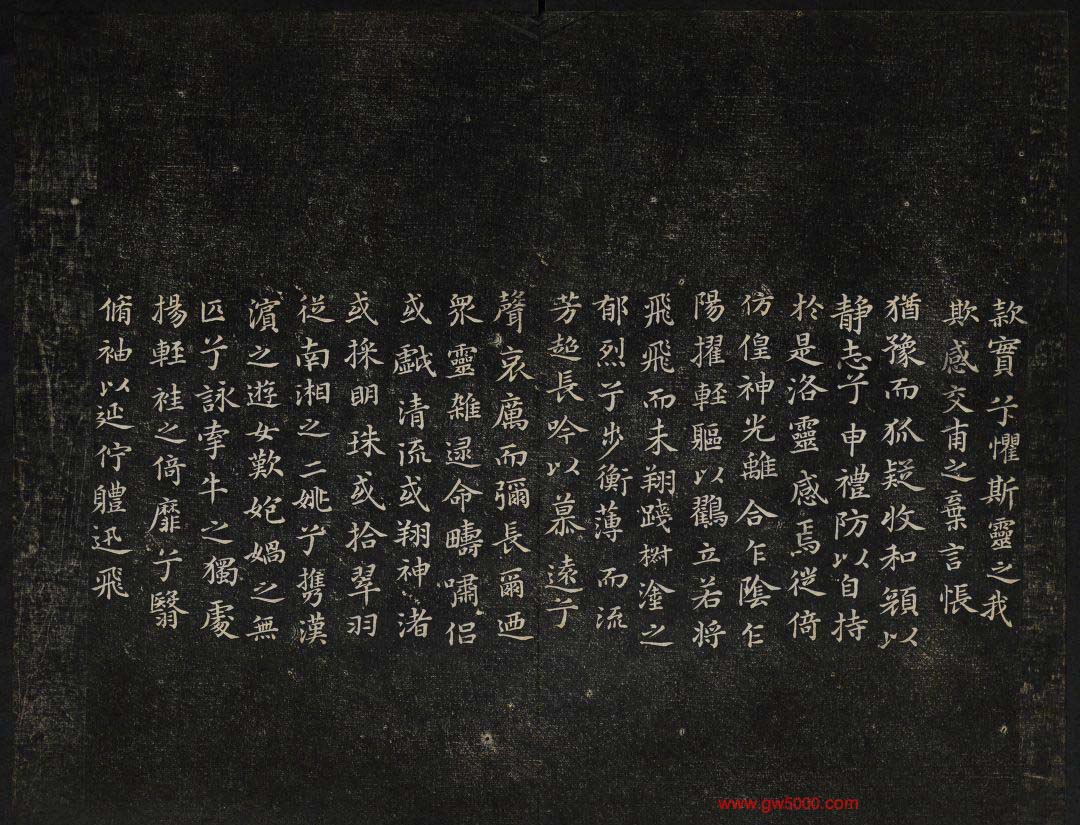 款實兮懼斯靈之我
欺感交甫之棄言悵
猶豫而狐疑收和顏以
靜志兮申禮防以自持
於是洛靈感焉從倚
彷徨神光離合乍陰乍
陽擢輕軀以鸛立若將
飛飛而未翔踐椒塗之
郁烈兮步衡薄而流
芳超長吟以慕遠兮
聲哀厲而彌長爾迺
衆靈雜遝命疇嘯侶
或戲清流或翔神渚
或採明珠或拾翠羽
從南湘之二姚兮攜漢
濱之遊女歎匏媧之無
匹兮詠牽牛之獨處
揚輕袿之倚靡兮翳
脩袖以延佇體迅飛
www.gw5000.com